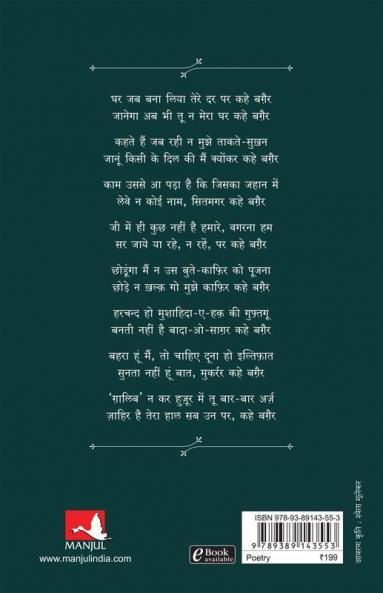 घर जब बना लिया तेरे दर पर कहे बग़ैर
जानेगा अब भी तू न मेरा घर कहे बग़ैर
कहते हैं जब रही न मुझे ताकते-सुख़न
जानूं किसी के दिल की मैं क्योंकर कहे बग़ैर
काम उससे आ पड़ा है कि जिसका जहान में
लेवे न कोई नाम, सितमगर कहे बग़ैर
जी में ही कुछ नहीं है हमारे, वगरना हम
सर जाये या रहे, न रहें, पर कहे बग़ैर
छोडूंगा मैं न उस बुते-काफ़िर को पूजना
छोड़े न ख़ल्क़ गो मुझे काफ़िर कहे बग़ैर
हरचन्द हो मुशाहिदा-ए-हक़ की गुफ़्तगू
बनती नहीं है बादा-ओ-साग़र कहे बग़ैर
बहरा हूं मैं, तो चाहिए दूना हो इल्तिफ़ात
सुनता नहीं हूं बात, मुकर्रर कहे बग़ैर
'ग़ालिब' न कर हुज़ूर में तू बार-बार अर्ज़
ज़ाहिर है तेरा हाल सब उन पर, कहे बग़ैर
MANJUL
www.manjulindia.com
eBook
available
ISBN 978-93-89143-55-3
9 789389 143553
Poetry ₹199
आवरण कृति : श्वेता मूलेकर